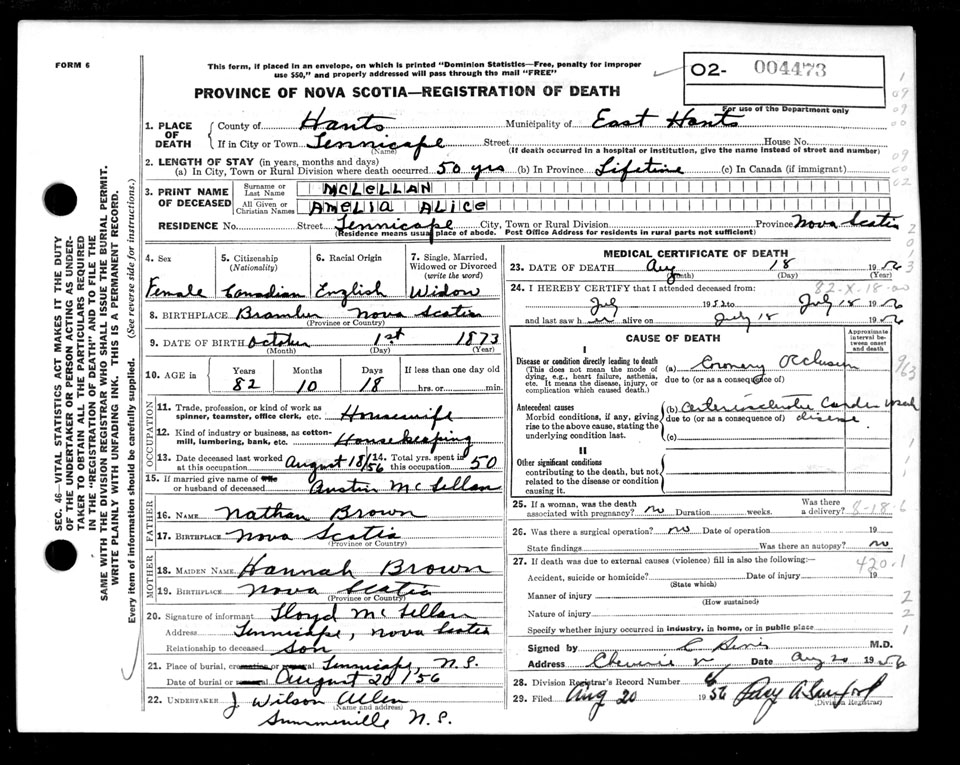 FORM 6
This form, if placed in an envelope, on which is printed "Dominion Statistics—Free, penalty for improper
use $50," and properly addressed will pass through the mail "FREE"
PROVINCE OF NOVA SCOTIA—REGISTRATION OF DEATH
02- 004473
For use of the Department only
SEC. 46—VITAL STATISTICS ACT MAKES IT THE DUTY
OF THE UNDERTAKER OR PERSON ACTING AS UNDER-
TAKER TO OBTAIN ALL THE PARTICULARS REQUIRED
IN THE "REGISTRATION OF DEATH" AND TO FILE THE
SAME WITH THE DIVISION REGISTRAR WHO SHALL ISSUE THE BURIAL PERMIT.
WRITE PLAINLY WITH UNFADING INK. THIS IS A PERMANENT RECORD.
Every item of information should be carefully supplied. (See reverse side for instructions.)
1. PLACE OF DEATH County of Hants Municipality of East Hants
If in City or Town Tennicape Street House No.
(Name) (If death occurred in a hospital or institution, give the name instead of street and number)
2. LENGTH OF STAY (in years, months and days)
(a) In City, Town or Rural Division where death occurred 50 yrs (b) In Province Lifetime (c) In Canada (if immigrant)
3. PRINT NAME OF DECEASED Surname or Last Name MCLELLAN
All Given or Christian Names AMELIA ALICE
RESIDENCE No. Street Tennicape City, Town or Rural Division Province Nova Scotia
(Residence means usual place of abode. Post Office Address for residents in rural parts not sufficient)
4. Sex 5. Citizenship (Nationality) 6. Racial Origin 7. Single, Married, Widowed or Divorced (write the word)
Female Canadian English Widow
8. BIRTHPLACE Nova Scotia
(Province or Country)
9. DATE OF BIRTH October 1st 1873
(Month) (Day) (Year)
10. AGE in Years Months Days If less than one day old
82 10 18 hrs. or min.
OCCUPATION
11. Trade, profession, or kind of work as
spinner, teamster, office clerk, etc. Housewife
12. Kind of industry or business, as cotton-
mill, lumbering, bank, etc. Housekeeping
13. Date deceased last worked at this occupation August 18/56 14. Total yrs. spent in this occupation 50
15. If married give name of wife
or husband of deceased Austin McLellan
FATHER
16. NAME Nathan Brown
17. BIRTHPLACE Nova Scotia
(Province or Country)
MOTHER
18. MAIDEN NAME Hannah Brown
19. BIRTHPLACE Nova Scotia
(Province or Country)
20. Signature of informant Lloyd McLellan
Address Tennicape, Nova Scotia
Relationship to deceased Son
21. Place of burial, cremation or removal Tennicape, N.S.
Date of burial or removal August 20/56
22. UNDERTAKER J. Wilson Allen
(Name and address)
Summerville N.S.
MEDICAL CERTIFICATE OF DEATH
23. DATE OF DEATH Aug 18 1956
(Month) (Day) (Year)
82-X-18-00
24. I HEREBY CERTIFY that I attended deceased from:
July 1952 to July 18 1956
and last saw h er alive on July 18 1956
CAUSE OF DEATH
Approximate interval between onset and death
I
Disease or condition directly leading to death
(This does not mean the mode of dying, e.g., heart failure, asthenia, etc. It means the disease, injury, or complication which caused death.)
(a) Coronary Occlusion
due to (or as a consequence of)
963
Antecedent causes
Morbid conditions, if any, giving rise to the above cause, stating the underlying condition last.
(b) Arteriosclerotic Cardio Vascul
due to (or as a consequence of) disease
(c)
II
Other significant conditions
contributing to the death, but not related to the disease or condition causing it.
25. If a woman, was the death associated with pregnancy? no Duration weeks. Was there a delivery?
8-18-6
26. Was there a surgical operation? no Date of operation 19
State findings Was there an autopsy? no
27. If death was due to external causes (violence) fill in also the following:—
420.1
Accident, suicide or homicide? Date of injury 19
(State which)
Manner of injury
(How sustained)
Nature of injury
Specify whether injury occurred in industry, in home, or in public place
Signed by M.D.
Address Date Aug 20 1956
28. Division Registrar's Record Number
29. Filed Aug 20 1956
(Division Registrar)